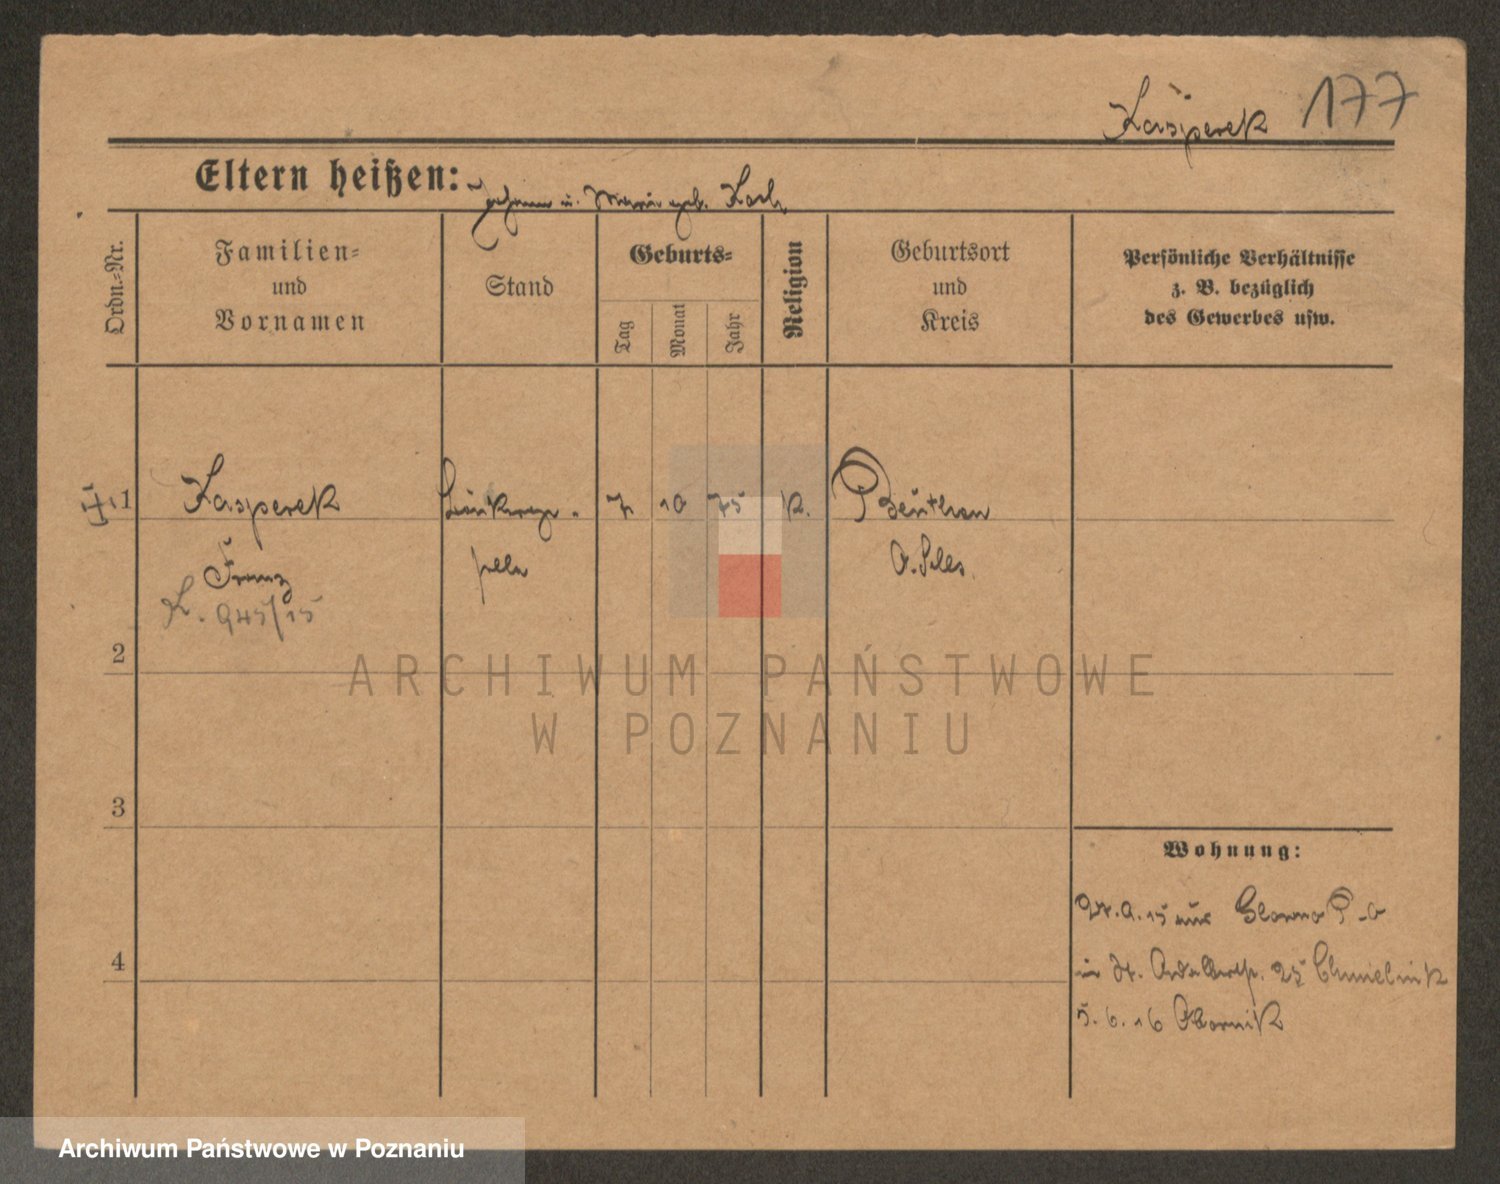 Kasperek 177
Eltern heißen: Johann u. Maria geb. Koch
Ordn.-Nr.
Familien-
und
Vornamen
Stand
Geburts-
Tag
Monat
Jahr
Religion
Geburtsort
und
Kreis
Persönliche Verhältnisse
z. B. bezüglich
des Gewerbes usw.
1 Kasperek 7 10 75 K. Beuthen
Franz O. Schles
K. 945/15
2
ARCHIWUM PAŃSTWOWE
W POZNANIU
3
Wohnung:
27.9.15 aus
in St. 25 Chmielnik
4
5.6.16 Obornik
Archiwum Państwowe w Poznaniu